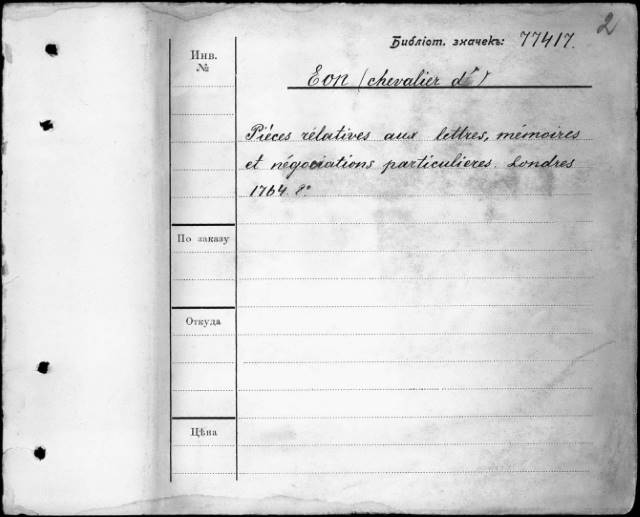 2
Библіот. значекъ: 77417.
Инв.
№
Eon (chevalier d')
Piéces rélatives aux lettres, mémoires
et négociations particulieres. Londres
1764. 8°
По заказу
Откуда
Цѣна